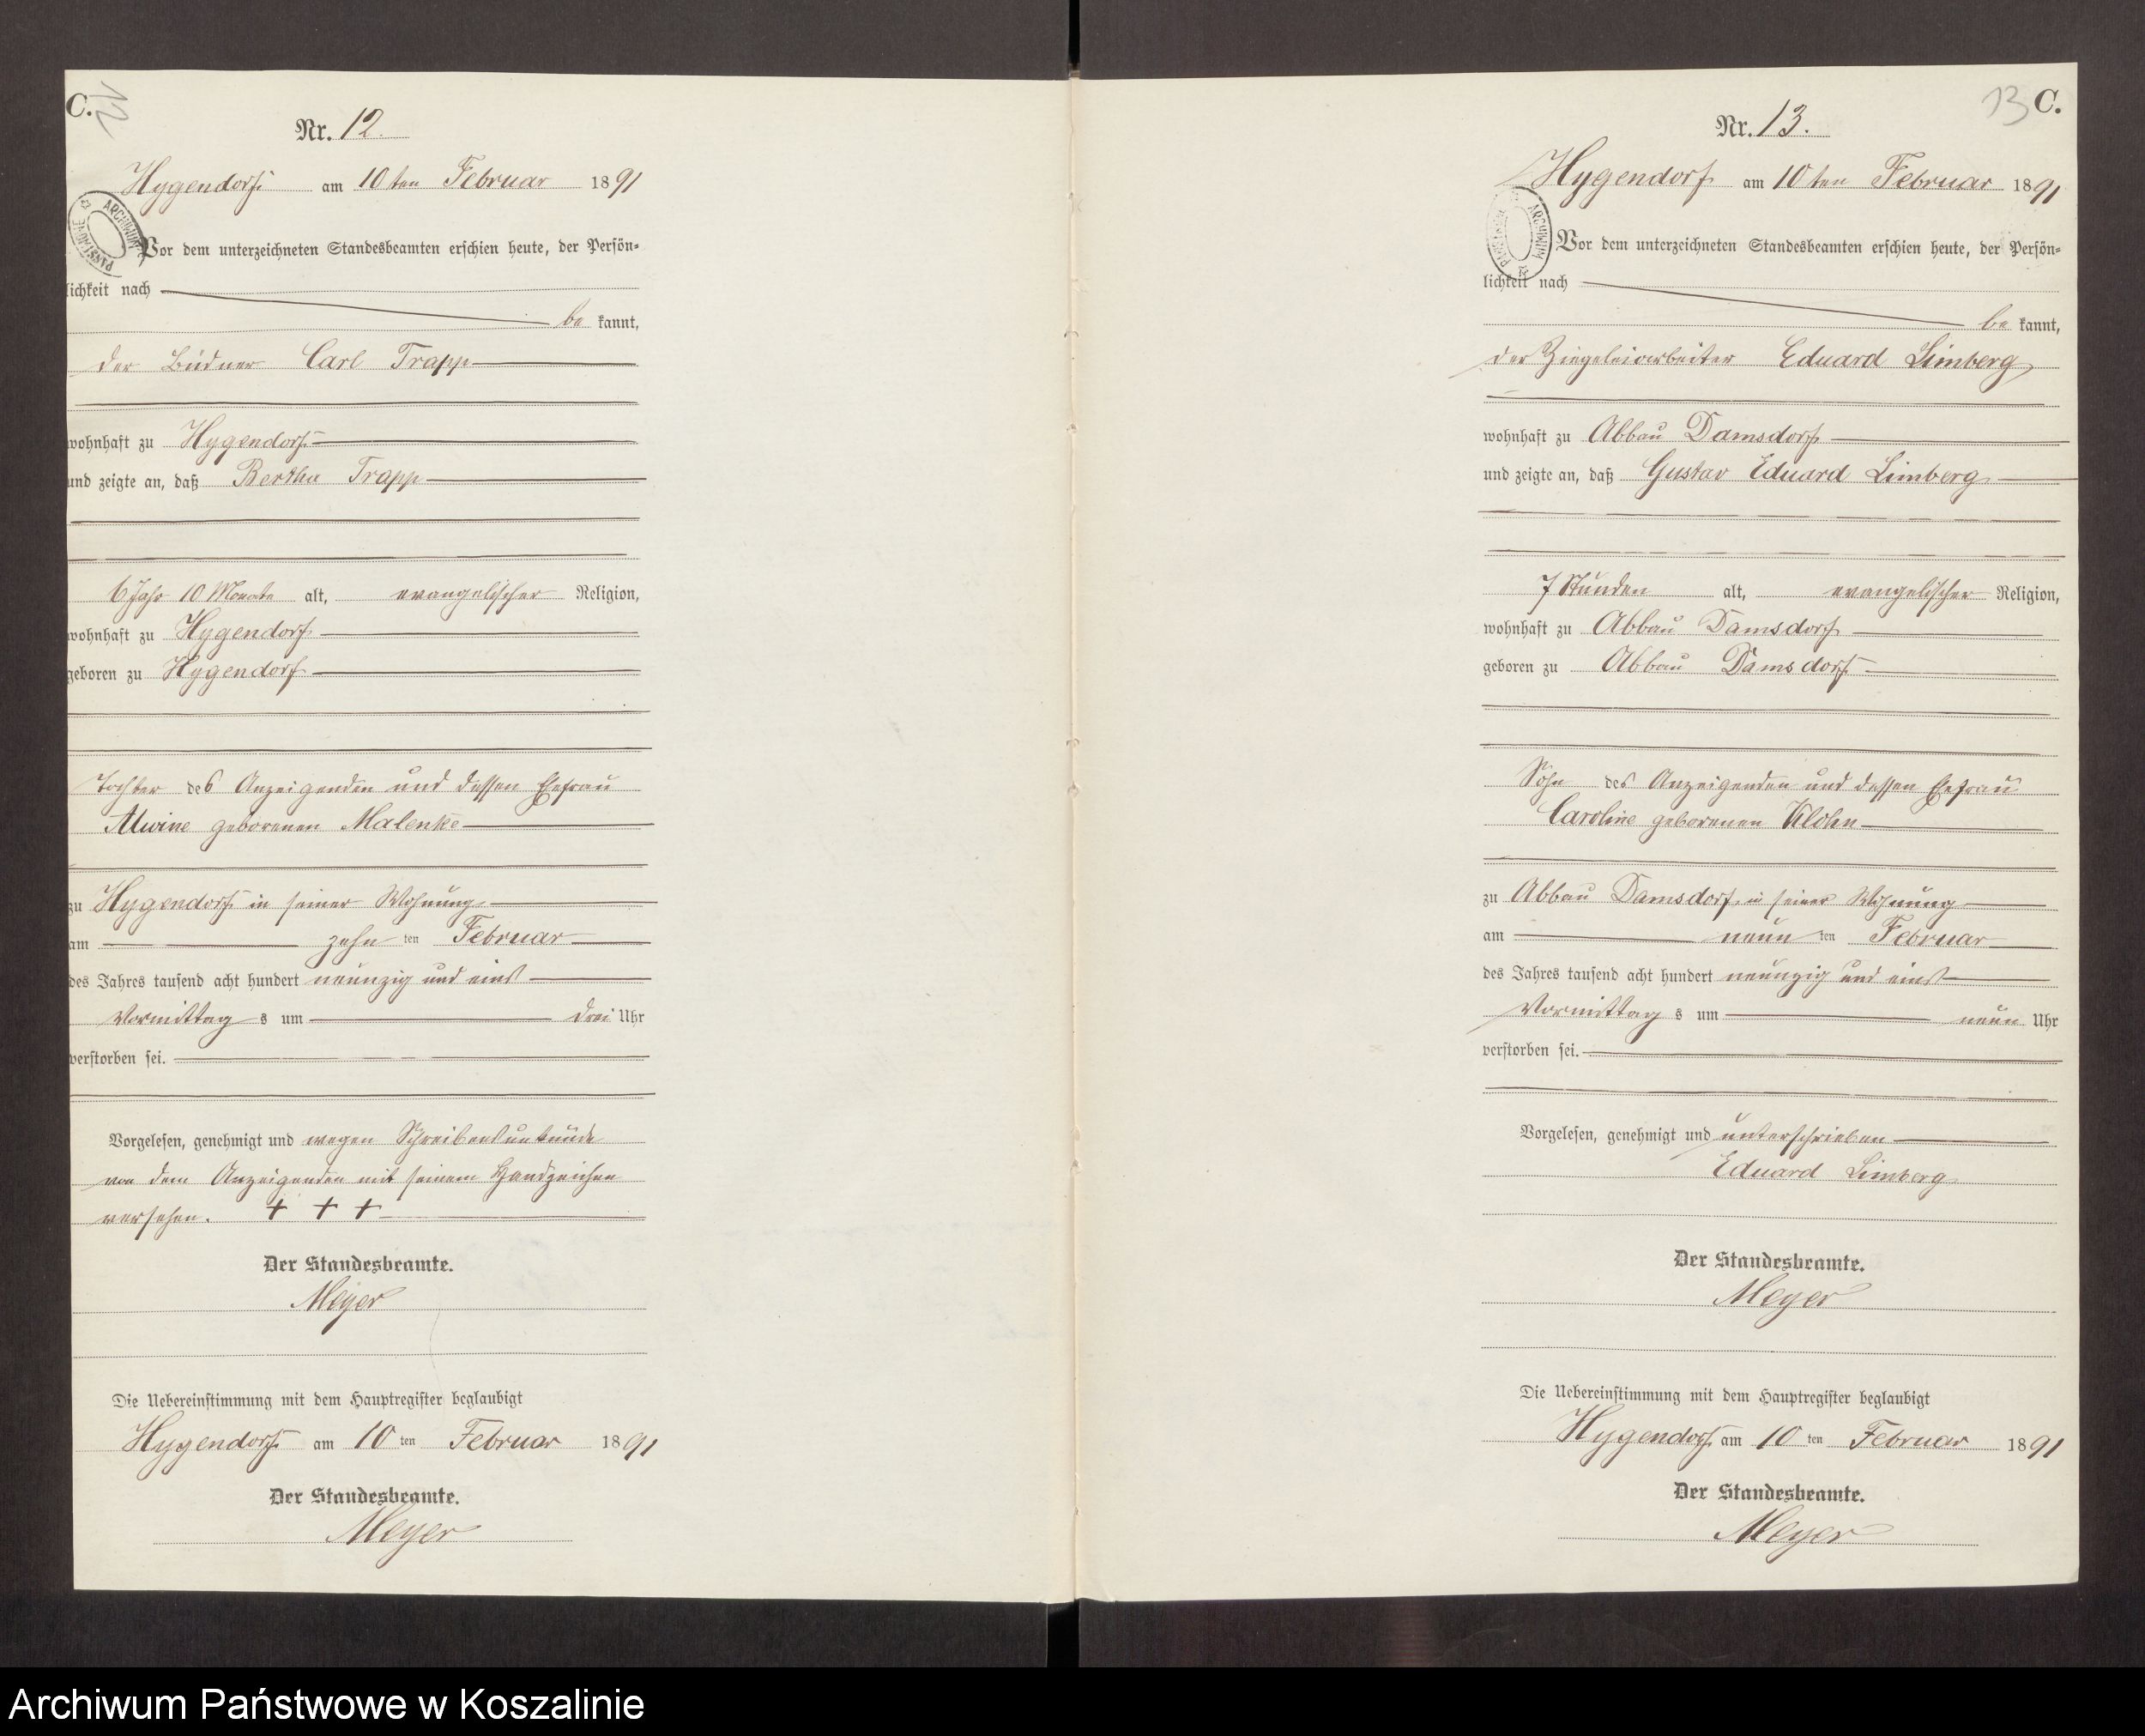 C.
12
Nr. 12.
Hygendorf am 10ten Februar 1891
Vor dem unterzeichneten Standesbeamten erschien heute, der Persön-
lichkeit nach
be kannt,
der Büdner Carl Trapp
wohnhaft zu Hygendorf
und zeigte an, daß Bertha Trapp
6 Jahr 10 Monate alt, evangelischer Religion,
wohnhaft zu Hygendorf
geboren zu Hygendorf
Tochter des Anzeigenden und dessen Ehefrau
Alwine geborenen Malenke
zu Hygendorf in seiner Wohnung
am zehn ten Februar
des Jahres tausend acht hundert neunzig und eins
Vormittag s um drei Uhr
verstorben sei.
Vorgelesen, genehmigt und wegen Schreibensunkunde
von dem Anzeigenden mit seinem Handzeichen
versehen. + + +
Der Standesbeamte.
Meyer
Die Uebereinstimmung mit dem Hauptregister beglaubigt
Hygendorf am 10 ten Februar 1891
Der Standesbeamte.
Meyer
ARCHIWUM PAŃSTWOWE
13 C.
Nr. 13.
Hygendorf am 10ten Februar 1891
Vor dem unterzeichneten Standesbeamten erschien heute, der Persön-
lichkeit nach
be kannt,
der Ziegeleiarbeiter Eduard Limberg
wohnhaft zu Abbau Damsdorf
und zeigte an, daß Gustav Eduard Limberg
7 Stunden alt, evangelischer Religion,
wohnhaft zu Abbau Damsdorf
geboren zu Abbau Damsdorf
Sohn des Anzeigenden und dessen Ehefrau
Caroline geborenen Klohn
zu Abbau Damsdorf in seiner Wohnung
am neun ten Februar
des Jahres tausend acht hundert neunzig und eins
Vormittag s um neun Uhr
verstorben sei.
Vorgelesen, genehmigt und unterschrieben
Eduard Limberg
Der Standesbeamte.
Meyer
Die Uebereinstimmung mit dem Hauptregister beglaubigt
Hygendorf am 10 ten Februar 1891
Der Standesbeamte.
Meyer
ARCHIWUM PAŃSTWOWE
Archiwum Państwowe w Koszalinie